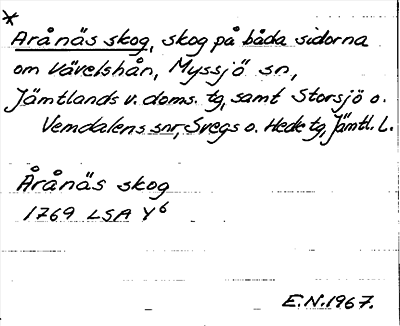 *
Arånäs skog, skog på båda sidorna
om Vävelshån, Myssjö sn,
Jämtlands v. doms. tg, samt Storsjö o.
Vemdalens snr, Svegs o. Hede tg, Jämtl. l.
Årånäs skog
1769 LSA Y6
E.N. 1967.